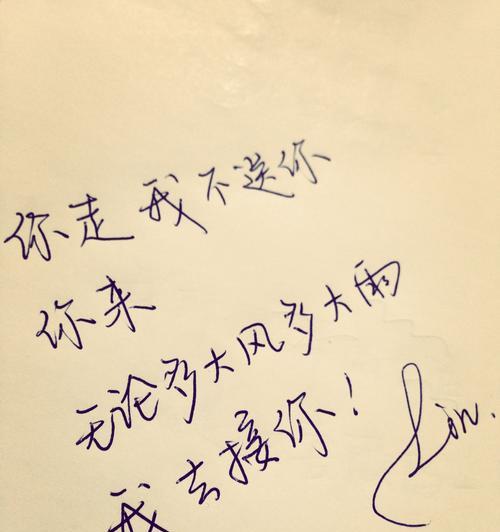 你走 我不送你
你来
无论多大风多大雨
我去接你！
Lin.